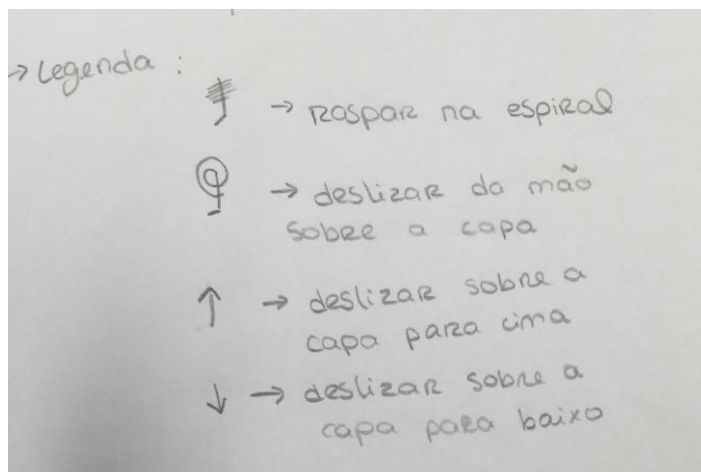 → Legenda :
→ Raspar na espiral
→ deslizar da mão
sobre a capa
↑ → deslizar sobre a
capa para cima
↓ → deslizar sobre a
capa para baixo